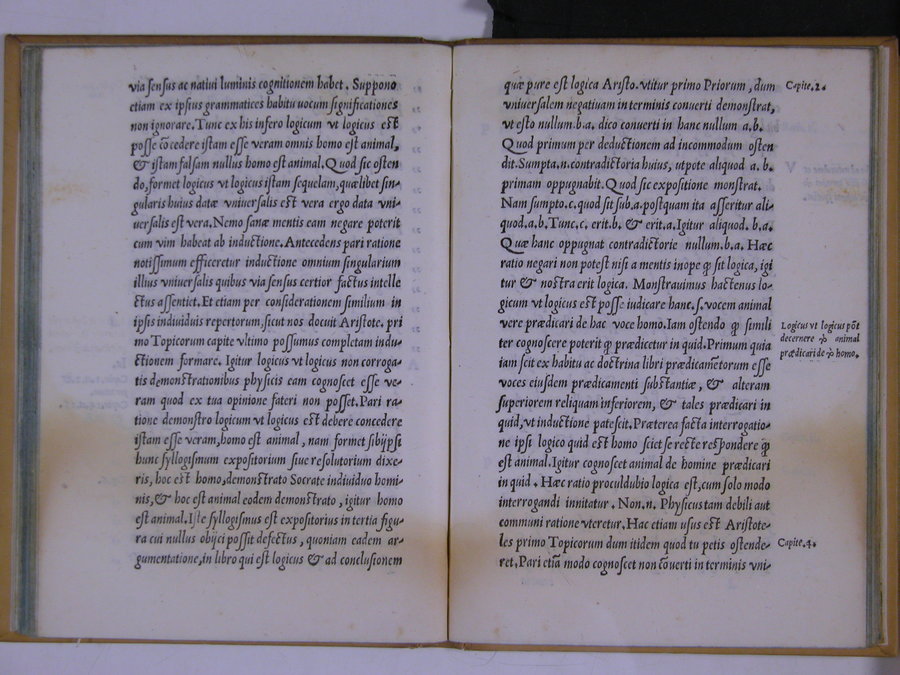 via sensus ac natiui luminis cognitionem habet. Suppono
etiam ex ipsius grammatices habitu uocum significationes
non ignorare. Tunc ex his infero logicum vt logicus est
posse cõcedere istam esse veram omnis homo est animal,
& istam falsam nullus homo est animal. Quod sic osten
do, formet logicus vt logicus istam sequelam, quælibet sin-
gularis huius datæ vniuersalis est vera ergo data vni-
uersalis est vera. Nemo sanæ mentis eam negare poterit
cum vim habeat ab inductione. Antecedens pari ratione
notissimum efficeretur inductione omnium singularium
illius vniuersalis quibus via sensus certior factus intelle
ctus assentiet. Et etiam per considerationem similium in
ipsis indiuiduis repertorum, sicut nos docuit Aristote. pri
mo Topicorum capite vltimo possumus completam indu-
ctionem formare. Igitur logicus vt logicus non corroga-
tis demonstrationibus physicis eam cognoscet esse ve-
ram quod ex tua opinione fateri non posset. Pari ra-
tione demonstro logicum vt logicus est debere concedere
istam esse veram, homo est animal, nam formet sibijpsi
hunc syllogismum expositorium siue resolutorium dixe-
ris, hoc est homo, demonstrato Socrate indiuiduo homi-
nis, & hoc est animal eodem demonstrato, igitur homo
est animal. Iste syllogismus est expositorius in tertia figu-
ra cui nullus obijci possit defectus, quoniam eadem ar-
gumentatione, in libro qui est logicus & ad conclusionem
quæ pure est logica Aristo. vtitur primo Priorum, dum
vniuersalem negatiuam in terminis conuerti demonstrat,
vt esto nullum. b.a. dico conuerti in hanc nullum a.b.
Quod primum per deductionem ad incommodum osten
dit. Sumpta. n. contradictoria huius, utpote aliquod a. b.
primam oppugnabit. Quod sic expositione monstrat.
Nam sumpto. c. quod sit sub. a. postquam ita asseritur ali-
quod. a. b. Tunc. c. erit. b. & erit. a. Igitur aliquod. b. a.
Quæ hanc oppugnat contradictorie nullum. b. a. Hæc
ratio negari non potest nisi a mentis inope ꝙ sit logica, igi
tur & nostra erit logica. Monstrauimus hactenus lo-
gicum vt logicus est posse iudicare hanc. s. vocem animal
vere prædicari de hac voce homo. Iam ostendo ꝙ simili
ter cognoscere poterit ꝙ prædicetur in quid. Primum quia
iam scit ex habitu ac doctrina libri prædicamẽtorum esse
voces eiusdem prædicamenti substantiæ, & alteram
superiorem reliquam inferiorem, & tales prædicari in
quid, vt inductione patescit. Præterea facta interrogatio-
ne ipsi logico quid est homo scit se recte respondere ꝙ
est animal. Igitur cognoscet animal de homine prædicari
in quid. Hæc ratio proculdubio logica est, cum solo modo
interrogandi innitatur. Non. n. Physicus tam debili aut
communi ratione vteretur. Hac etiam usus est Aristote-
les primo Topicorum dum itidem quod tu petis ostende-
ret. Pari etiã modo cognoscet non cõuerti in terminis vni-
Capite. 2.
Logicus vt logicus põt
decernere ꝙ animal
prædicari de ꝙ homo.
Capite. 4.